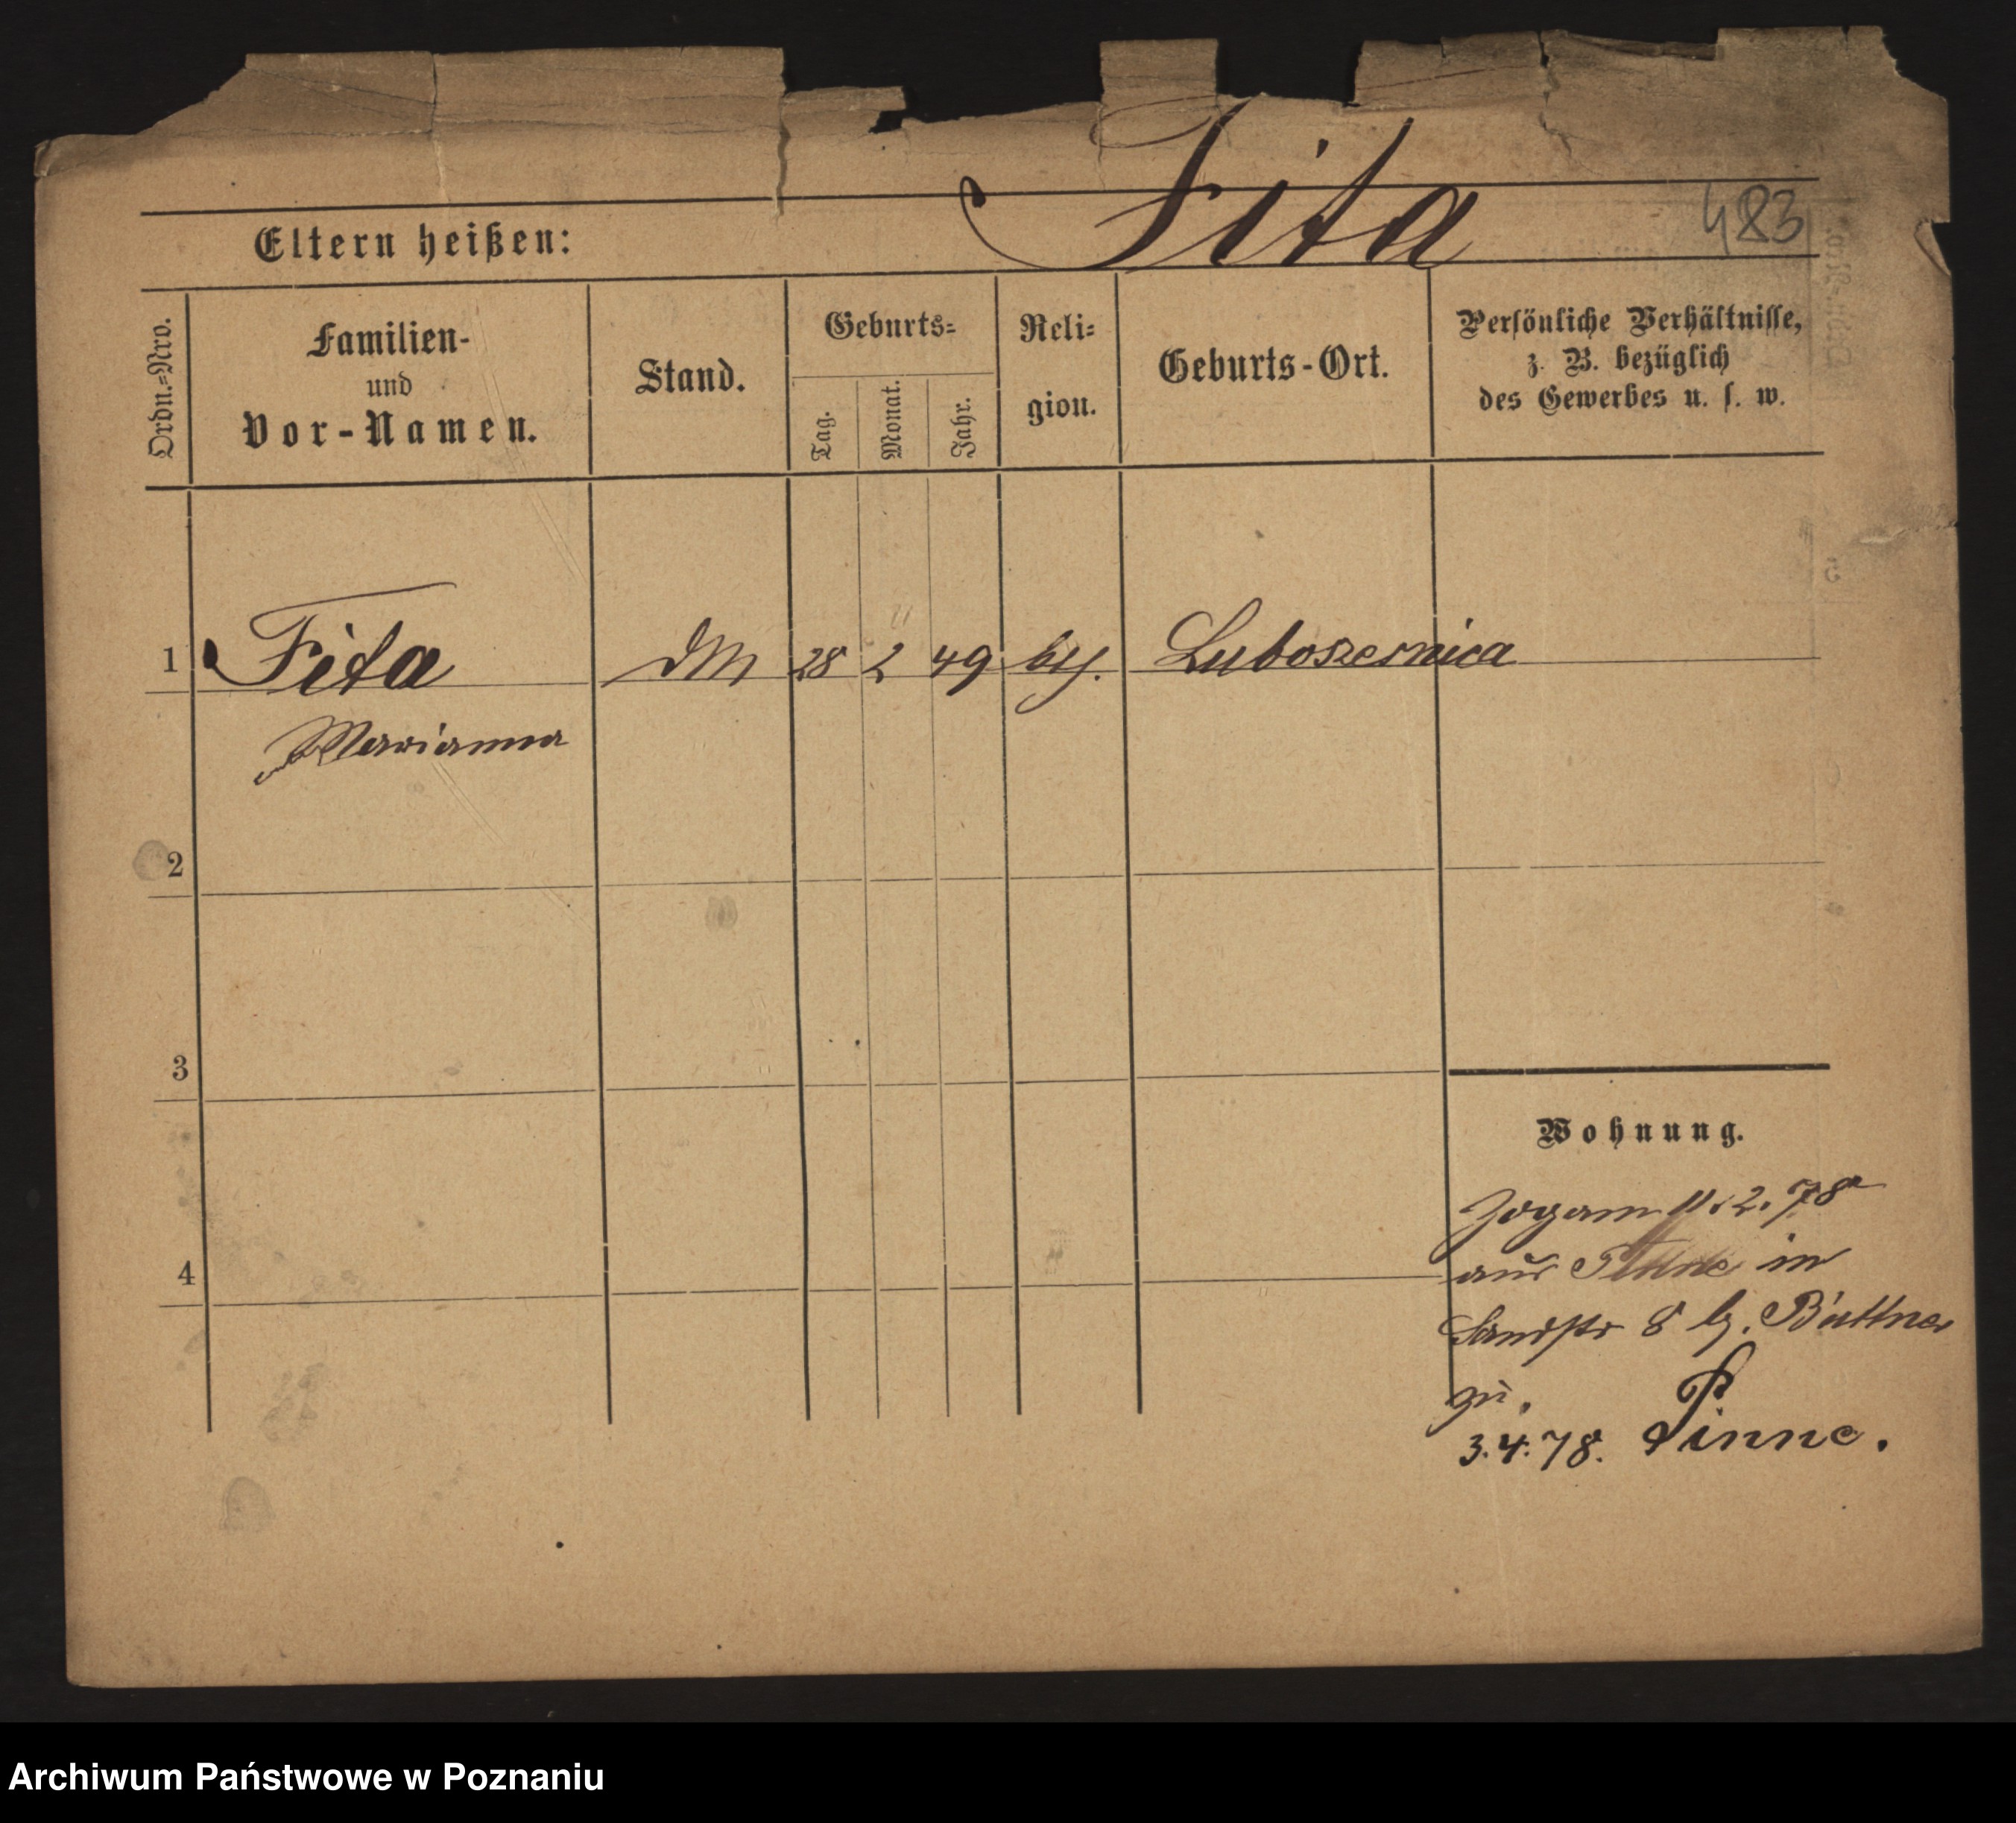 Fita
483
Eltern heißen:
Ordn.=Nro.
Familien-
und
Vor-Namen.
Stand.
Geburts=
Tag.
Monat.
Jahr.
Reli=
gion.
Geburts-Ort.
Persönliche Verhältnisse,
z. B. bezüglich
des Gewerbes u. s. w.
1 Fita DM 28 2 49 Luboszesnica
Marianna
2
3
4
Wohnung.
Zogam 11.2.78
aus Pinne in
Sandstr 8 b. Büttner
zu.
3.4.78. Pinne.
Archiwum Państwowe w Poznaniu